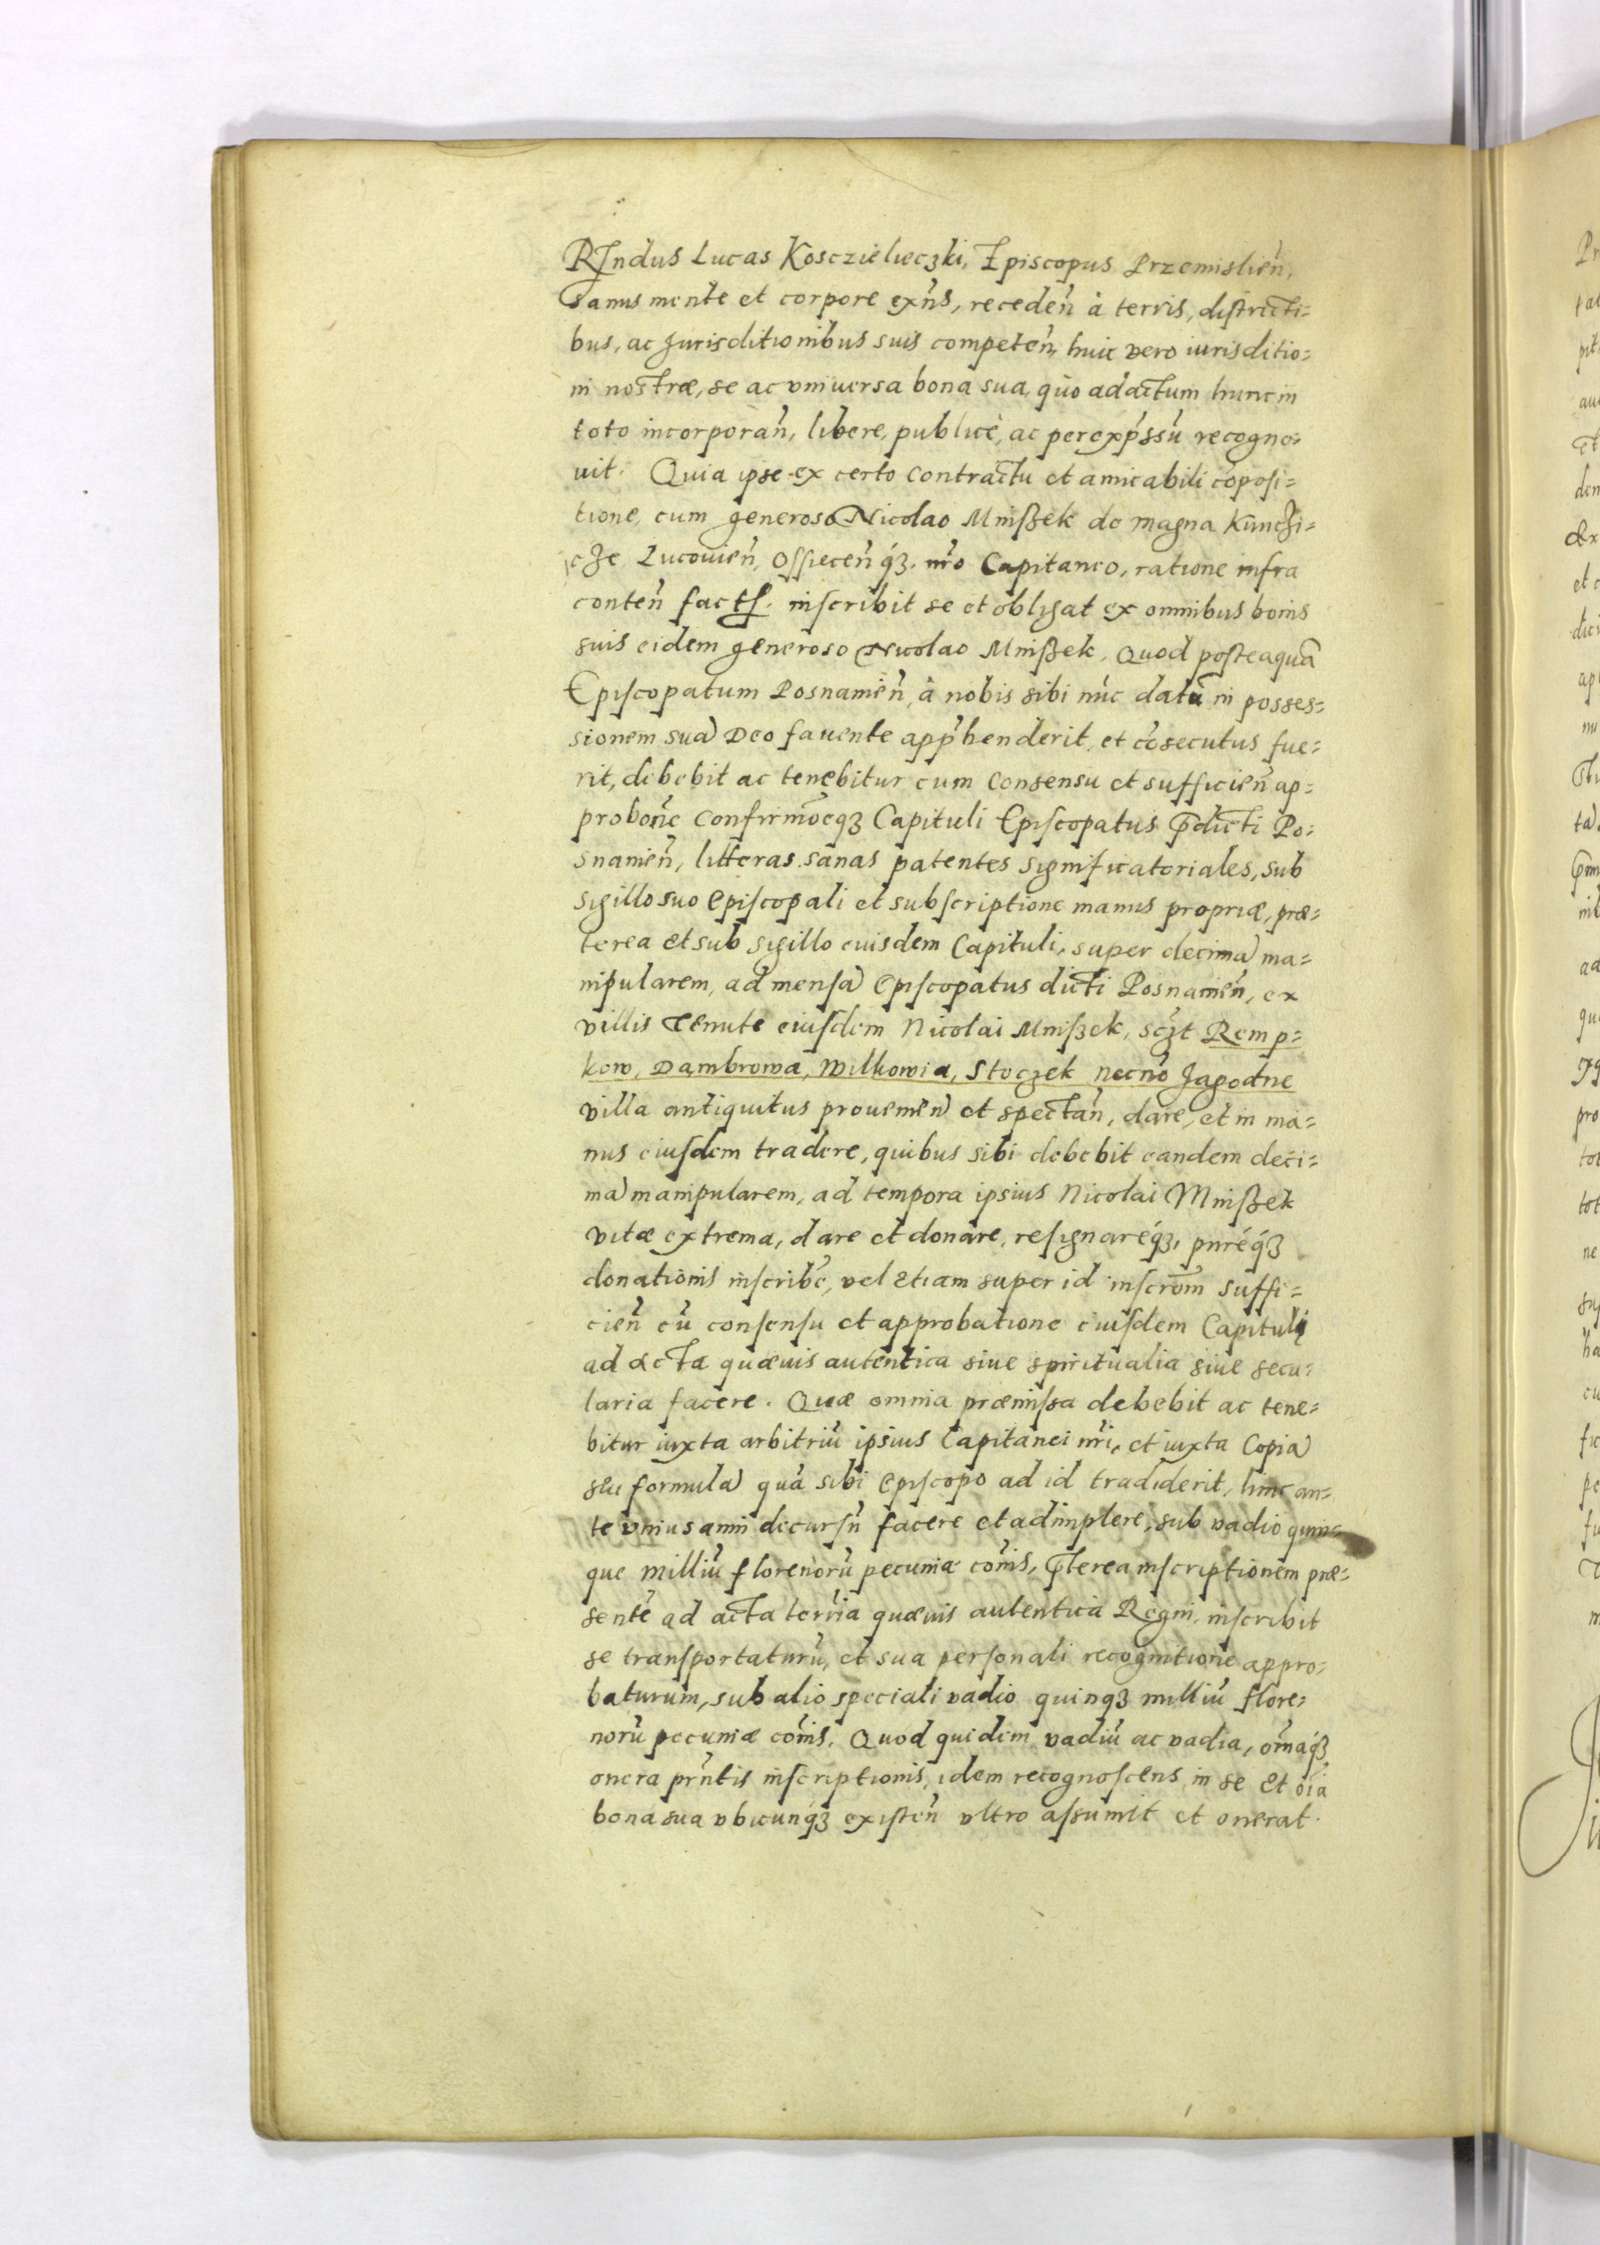 RJndus Lucas Kosczieliećzki, Episcopus Przemislien̄,
sanus mente et corpore exn̄s, receden̄ à terris, districti=
bus, ac Jurisditionibus suis competen̄, huic vero iurisditio=
ni nostræ, se ac vniuersa bona sua, quo ad actum hunc in
toto incorporan̄, libere, publicè, ac per exp̄ssū recogno=
uit. Quia ipse ex certo contractu et amicabili cōposi=
tione, cum generoso Nicolao Mnißek de magna Kunczi=
cze Lucouien̄, Ossiecen̄ q́ȝ. nr̄o Capitaneo, ratione infra
conten̄ fact. inscribit se et obligat ex omnibus bonis
suis eidem generoso Nicolao Mnißek, Quod posteaquā
Episcopatum Posnamien̄, à nobis sibi nūc datū in posses=
sionem suā Deo fauente app̄henderit, et cōsecutus fue=
rit, debebit ac tenebitur cum consensu et sufficien̄ ap=
probon̄e confirmōeqȝ Capituli Episcopatus p̄dicti Po=
snanien̄, litteras sanas patentes significatoriales, sub
sigillo suo Episcopali et subscriptione manus propriæ, præ=
terea et sub sigillo euisdem Capituli, super decimā ma=
nipularem, ad mensā Episcopatus dicti Posnanien̄, ex
villis tenute eiusdem Nicolai Mnißek, sczt Remp=
kow, Dambrowa, Wilkowia, Stoczek necnō Jagodne
villa antiquitus prouenien̄ et spectan̄, dare, et in ma=
nus eiusdem tradere, quibus sibi debebit eandem deci=
mā manipularem, ad tempora ipsius Nicolai Mnißek
vitæ extrema, dare et donare, resignareq́ȝ, pnréq́ȝ
donationis inscribe, vel etiam super id inscrōm suffi=
cien̄ cū consensu et approbatione eiusdem Capituli
ad acta quæuis autentica siue spiritualia siue secu=
laria facere. Quæ omnia præmissa debebit ac tene=
bitur iuxta arbitriū ipsius Capitanei nr̄i, et iuxta Copiā
seu formulā quā sibi Episcopo ad id tradiderit, hinc an=
te vnius anni decursū facere et adimplere, sub vadio quin=
que milliū florenorū pecuniæ coīs, p̄terea inscriptionem præ=
sentē ad acta terr̄ia quæuis autentica Regni, inscribit
se transportaturū, et sua personali recognitione appro=
baturum, sub alio speciali vadio quinqȝ milliū flore=
norū pecuniæ coīs, Quod quidem vadiū ac vadia, om̄aq́ȝ
onera prn̄tis inscriptionis, idem recognoscens in se et oīa
bona sua vbicunq́ȝ existen̄ vltro assumit et onerat.